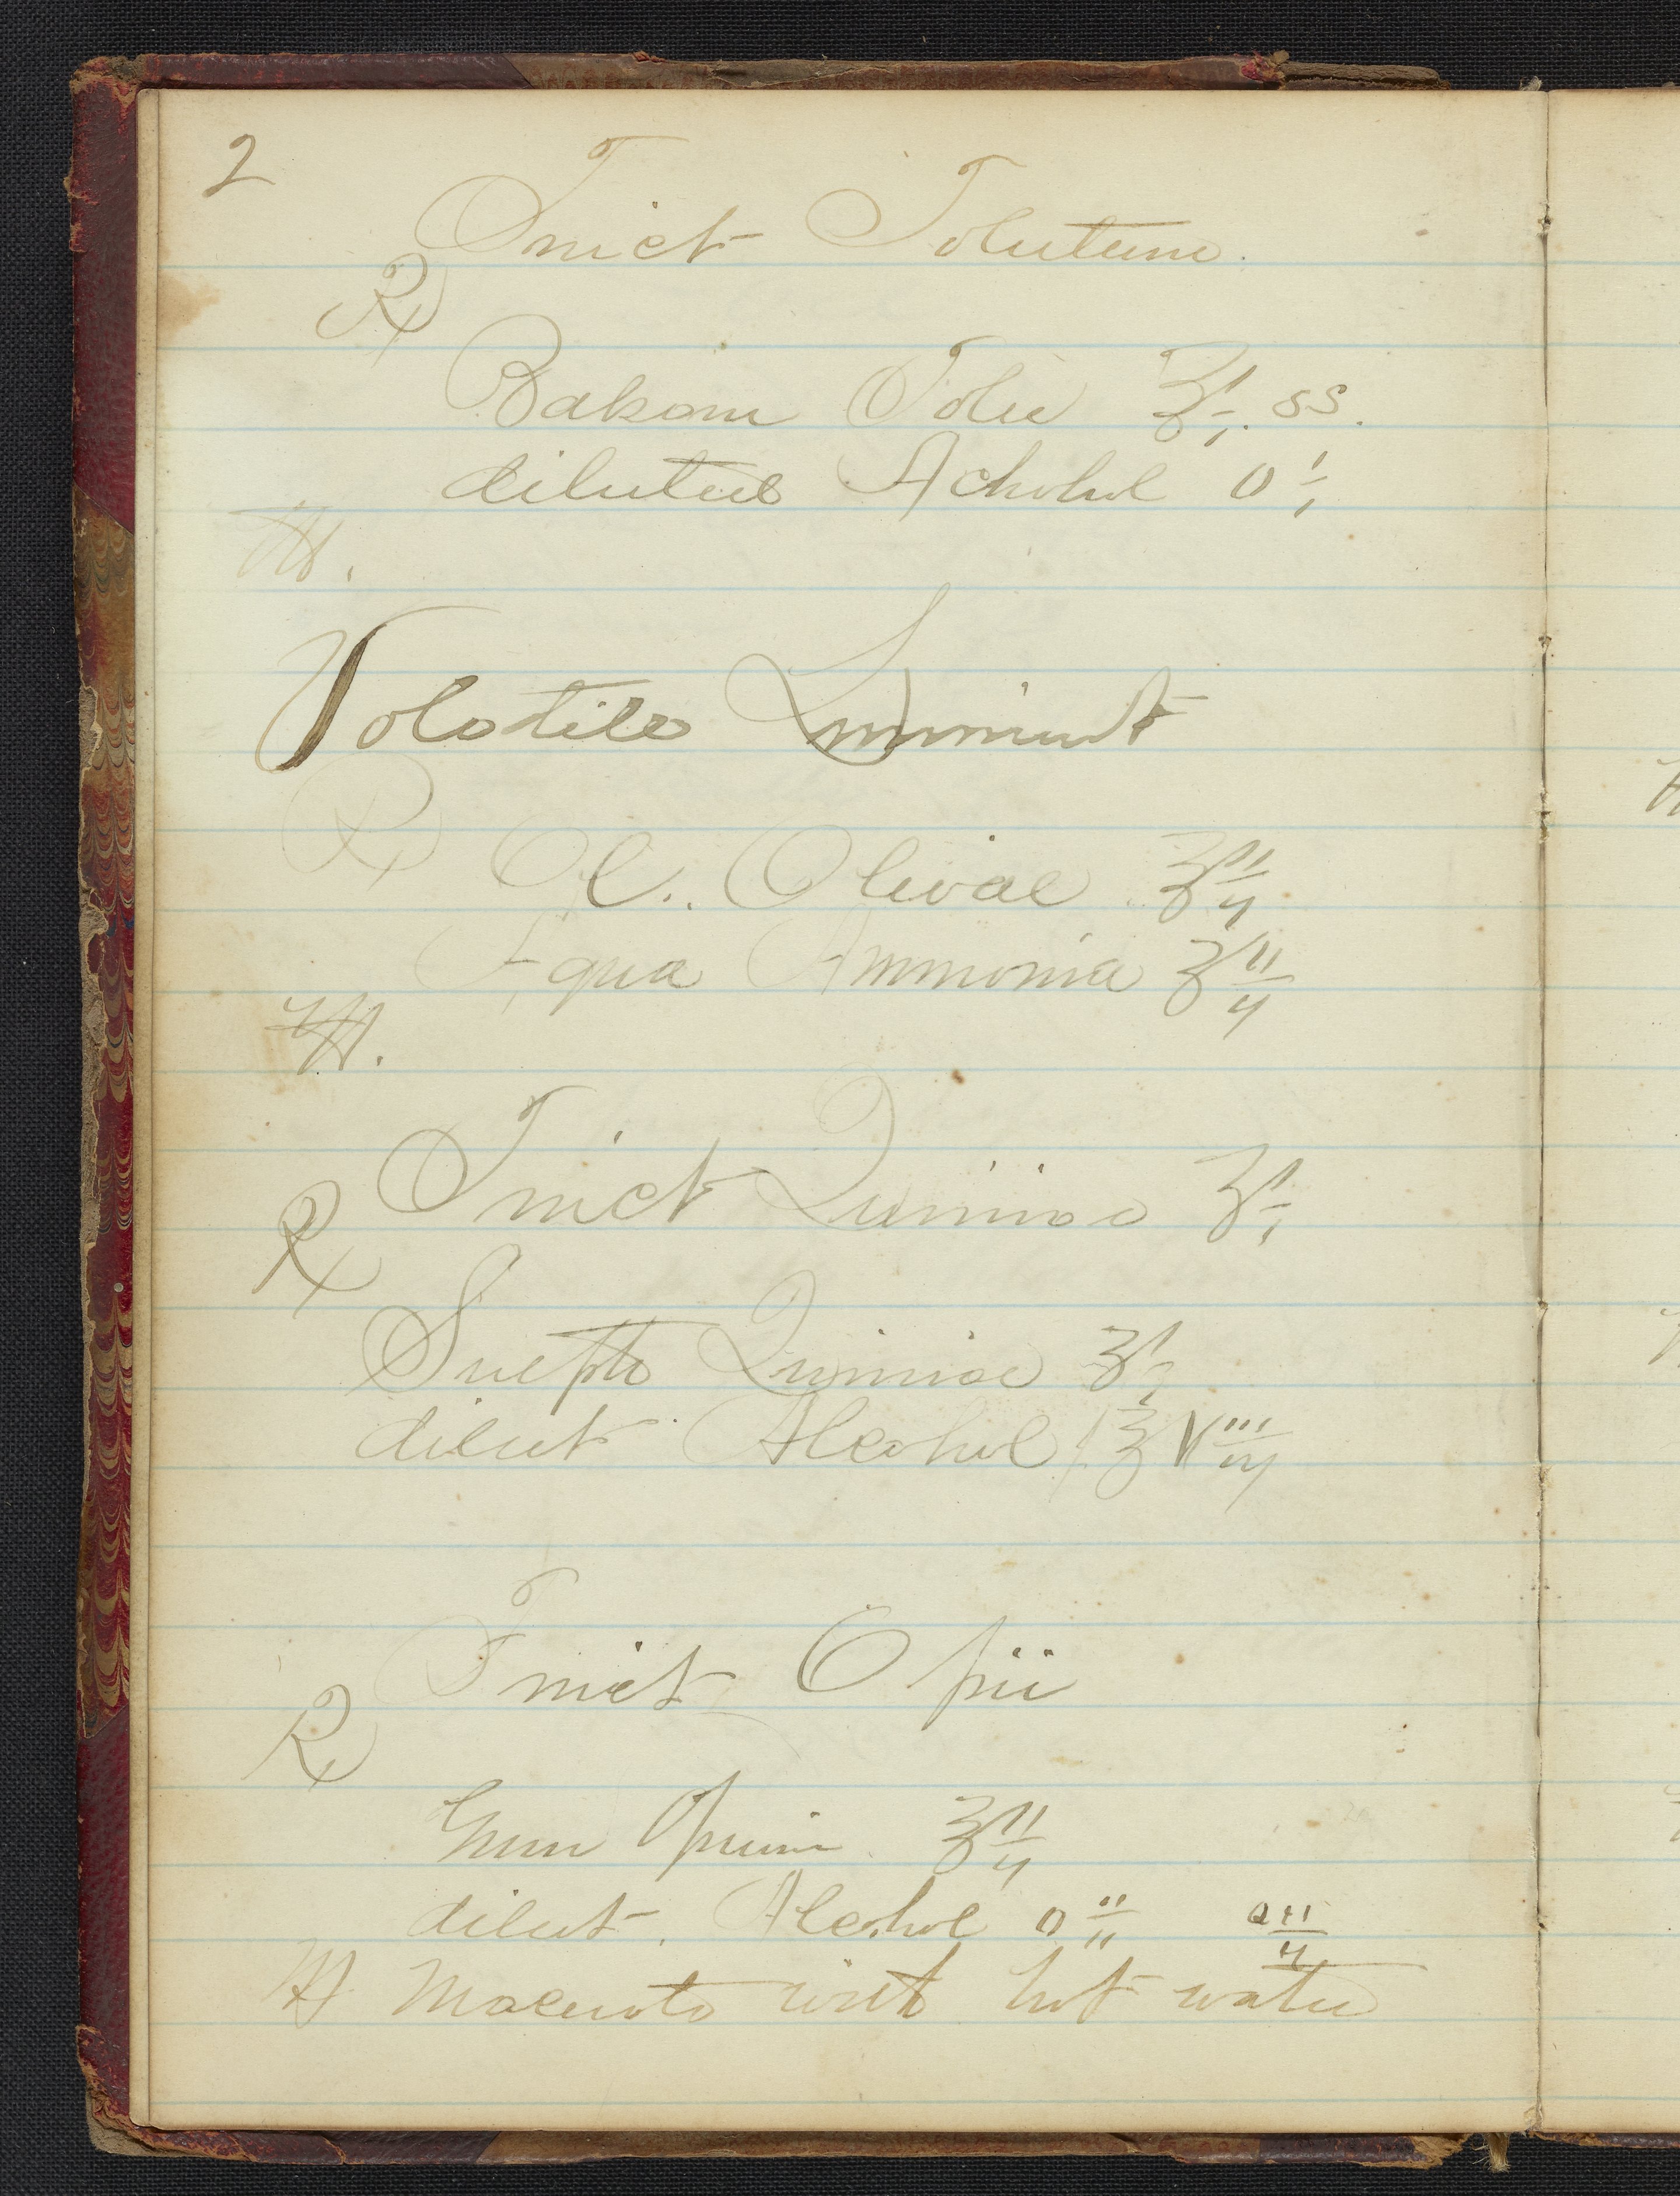 2
Tinct Tolutum.
℞
Balsom Tolu ℥i. ss.
diluted Acholol O i
M.
Volatile Liniment
℞
Ol. Olivae ℥ii
Aqua Ammonia ℥ii
M.
Tinct Quiniae ℥i
℞
Sulph Quiniae ℥i
dilut Alcohol f℥ Viii
Tinct Opii
℞
Gum Opium ℥ii
dilut. Alcohol O ii O ii
M Macerate with hot water